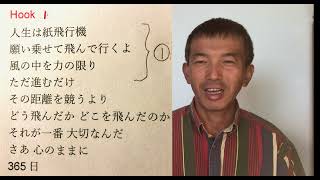 Hook 1
人生は紙飛行機
願い乗せて飛んで行くよ
風の中を力の限り
ただ進むだけ
①
その距離を競うより
どう飛んだか どこを飛んだのか
それが一番 大切なんだ
さあ 心のままに
365 日